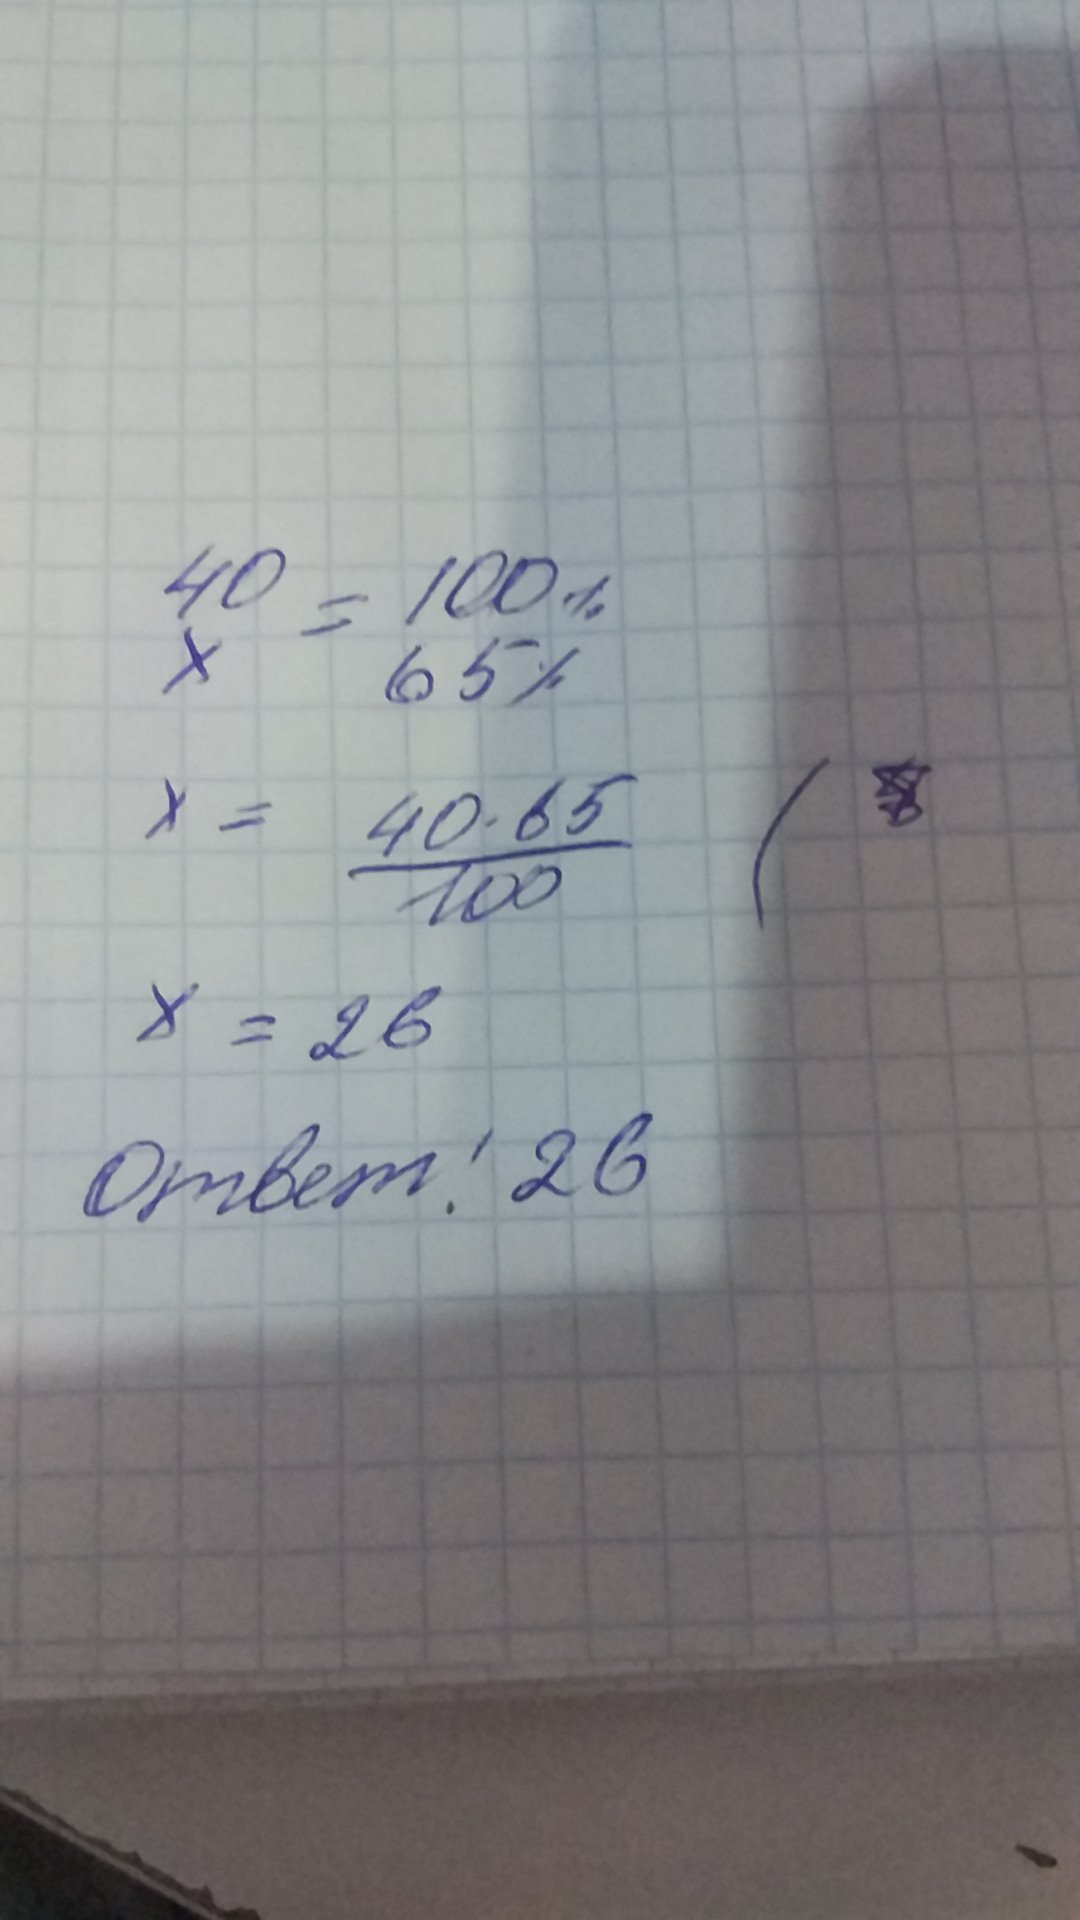 40 = 100%
x 65%
x = 40·65
100
(
x = 26
Ответ: 26